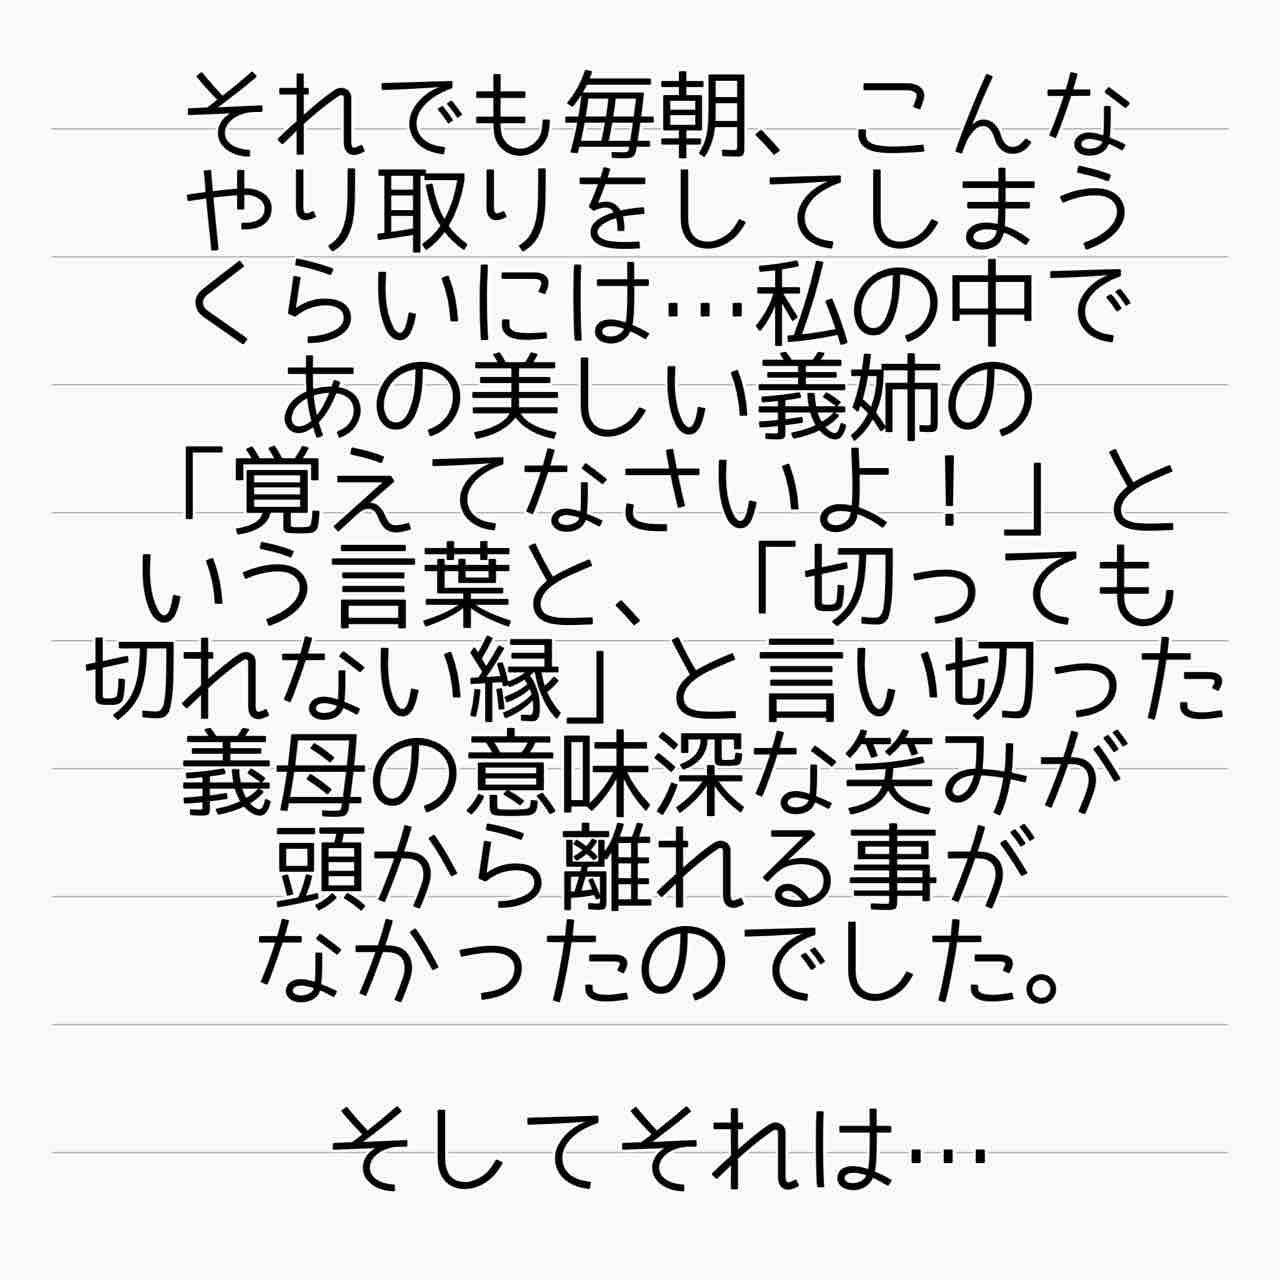 それでも毎朝、こんな
やり取りをしてしまう
くらいには…私の中で
あの美しい義姉の
「覚えてなさいよ！」と
いう言葉と、「切っても
切れない縁」と言い切った
義母の意味深な笑みが
頭から離れる事が
なかったのでした。
そしてそれは…